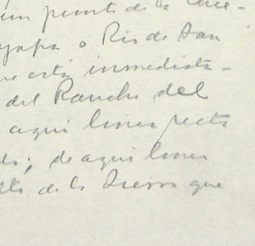 un punto de la
yapa o Rio de San
que está inmediata-
del Rancho del
aqui linea recta
de aqui linea
de la Sierra que